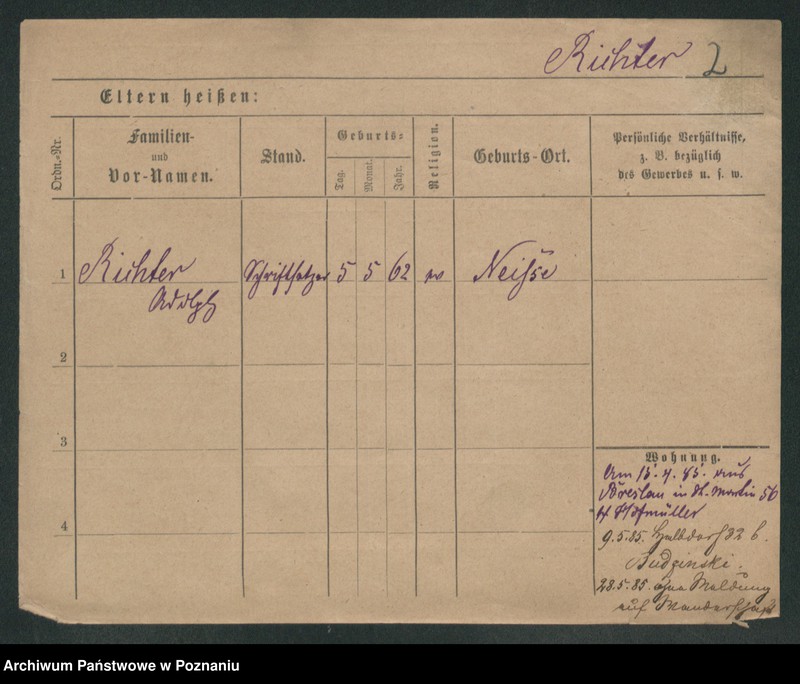 Richter 2
Eltern heißen:
Ordn.-Nr.
Familien-
und
Vor-Namen.
Stand.
Geburts-
Tag.
Monat.
Jahr.
Religion.
Geburts-Ort.
Persönliche Verhältnisse,
z. B. bezüglich
des Gewerbes u. s. w.
1 Richter Schriftsetzer 5 5 62 ev Neisse
Adolph
2
3
4
Wohnung.
Am 15.4.85. aus
Breslau in St. Martin 56
b/ Hofmüller
9.5.85. Halbdorf 32 b.
Budzinski.
28.5.85. ohne Meldung
auf Wanderschaft
Archiwum Państwowe w Poznaniu